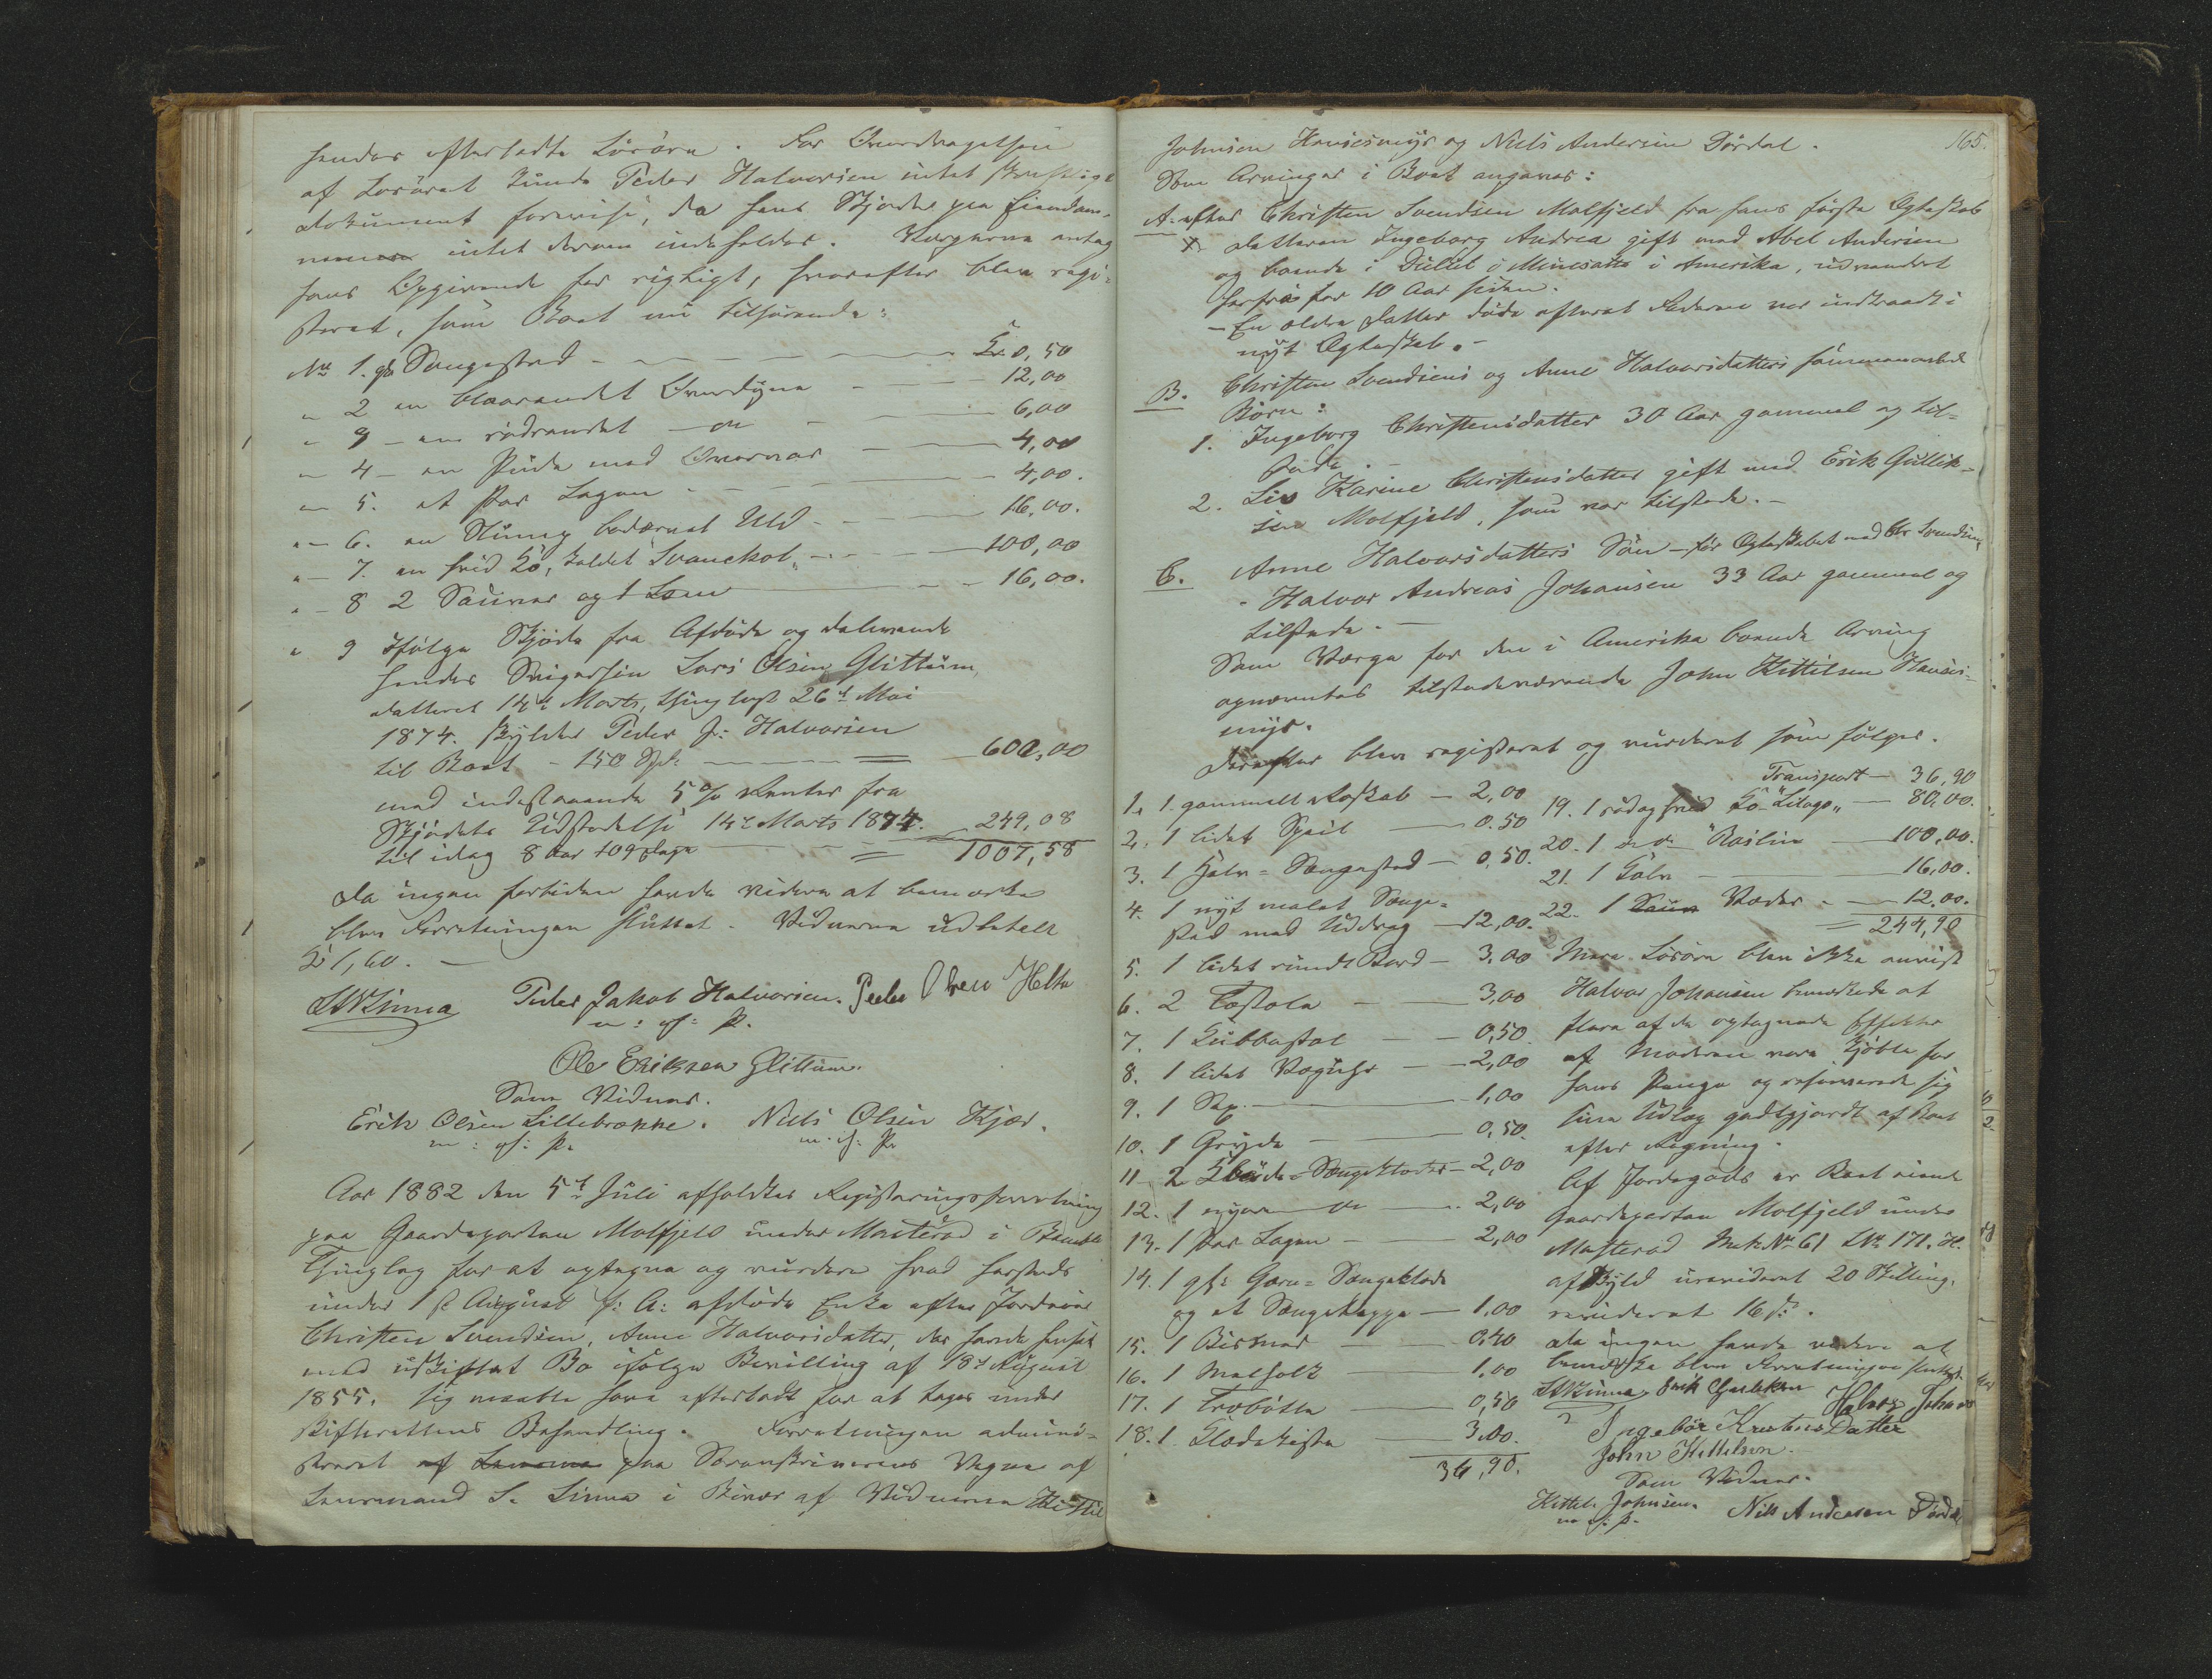 hendes efterladte Løsøre. For Overdragelsen
af Løsøret kunde Peder Halvorsen intet skriftligt
dokument forevise, da hans Skjøde paa Eiendom-
men intet derom indeholder. Vurderne antog
hans Opgivende for rigtigt, hvorefter blev regi-
streret, som Boet nu tilhørende:
No 1. gl. Sengested - Kr. 0,50
" 2 en blaarandet Overdyne - 12,00
" 3 - en rødrandet - do - 6,00
" 4 - en Pude med Overvar - 4,00
" 5. et Par Lagen - 4,00.
" 6. en Uld - 16,00.
" 7. en hvid Ko, kaldet "Svanekol" - 100,00
" 8 2 Sauver og 1 Lam - 16,00.
" 9 Ifølge Skjøde fra Afdøde og dalevende
hendes Svigersøn Lars Olsen Glittum,
datteret 14de Marts, thinglyst 26de Mai
1874. skylder Peder J: Halvorsen
til Boet - 150 Spd: = 600,00
med indestaaende 5 % Renter fra
Skjødets Udstedelse 14de Marts 1874.
til idag 8 Aar 109 Dage - 249,08
= 1007,58
Da ingen fortiden havde videre at bemærke
blev Forretningen sluttet. Vidnerne udbetalt
Kr 1,60.
S Linna Peder Jakob Halvorsen. Peder Olsen Helte
m: if: P.
Ole Eriksen Glittum.
Som Vidner.
Erik Olsen Lillebrække. Niels Olsen Kjær.
m: if: P. m. if. P.
Aar 1882 den 5te Juli afholdtes Registreringsforretning
paa Gaardeparten Molfjeld under Mosterød i Bamble
Thinglag for at optegne og vurdere hvad herstede
under 1ste August f: A: afdøde Enke efter Jordeier
Christen Svendsen, Anne Halvorsdatter, der havde hensidt
med uskiftet Bo ifølge Bevilling af 18de August
1855. sig maatte have efterladt for at tages under
Skifterettens Behandling. Forretningen admini-
streret paa Sorenskriverens Vegne af
Lensmand S. Linna i Nærvær af Vidnerne Kittil
165.
Johnsen Hansesmyr og Niels Andersen Dørdal.
Som Arvinger i Boet angaves:
A. efter Christen Svendsen Molfjeld fra hans første Ægteskab
x datteren Ingeborg Andrea gift med Abel Andersen
og boende i Dulut i Minesotta i Amerika, udvandret
herfra for 10 Aar siden.
- En ældre datter døde efterat Faderen var indtraadt i
nyt Ægteskab. -
B. Christen Svendsens og Anne Halvorsdatters sammenavlede
Børn:
1. Ingeborg Christensdatter 30 Aar gammel og til-
stede. -
2. Lis Karine Christensdatter gift med Erik Gullik-
sen Molfjeld, som var tilstede. -
C. Anne Halvorsdatters Søn - før Ægteskabet med Chr Svendsen,
- Halvor Andreas Johansen 33 Aar gammel og
tilstede. -
Som Værge for den i Amerika boende Arving
opnævntes tilstedeværende John Kittilsen Hanses-
myr.
Derefter blev registreret og vurderet som følger.
1. 1. gammelt Skab - 2,00
2. 1 lidet Speil - 0.50
3. 1 Halv-Sengested - 0,50.
4. 1 nyt malet Senge-
sted med Uddrag - 12,00.
5. 1 lidet rundt Bord - 3,00
6. 2 Træstole - 3,00
7. 1 Kubbestol - 0,50
8. 1 lidet Væguhr - 2,00
9. 1 - 1,00
10. 1 Gryde - 0,50.
11 2 Sengeklæder - 2,00
12. 1 nyere do - 2,00
13. 1 Par Lagen - 2,00
14. 1 gl: Garn-Sengeklæde
og et Sengeteppe - 1,00
15. 1 Bismer - 0,40
16. 1 - 1,00
17. 1 Træbøtte - 0,50
18. 1 Klædekiste - 3,00.
36,90.
Transport - 36,90
19. 1 rød og hvid Ko "Litago" - 80,00.
20. 1 do "Roslin" - 100,00.
21. 1 Kalv - 16,00.
22. 1 Sau Væder - 12,00.
= 244,90
Mere Løsøre blev ikke anvist
Halvor Johansen bemærkede at
flere af de optegnede Effekter
af Moderen vare kjøbte for
hans Penge og reserverede sig
sine Udlæg godtgjordt af Boet
efter Regning.
Af Jordegods er Boet eiende
Gaardeparten Molfjeld under
Mosterød Mat. No 61 LNo 171. H.
af Skyld urevideret 20 Skilling.
revideret 16 s:.
Da ingen havde videre at
bemærke blev Forretningen sluttet.
S Linna, Erik Gulleksen Halvor Johans
Ingebor Krestens Datter
John Kittelsen.
Som Vidner.
Kittil Johnsen. Nils Andersen Dørdal
m. if. P.